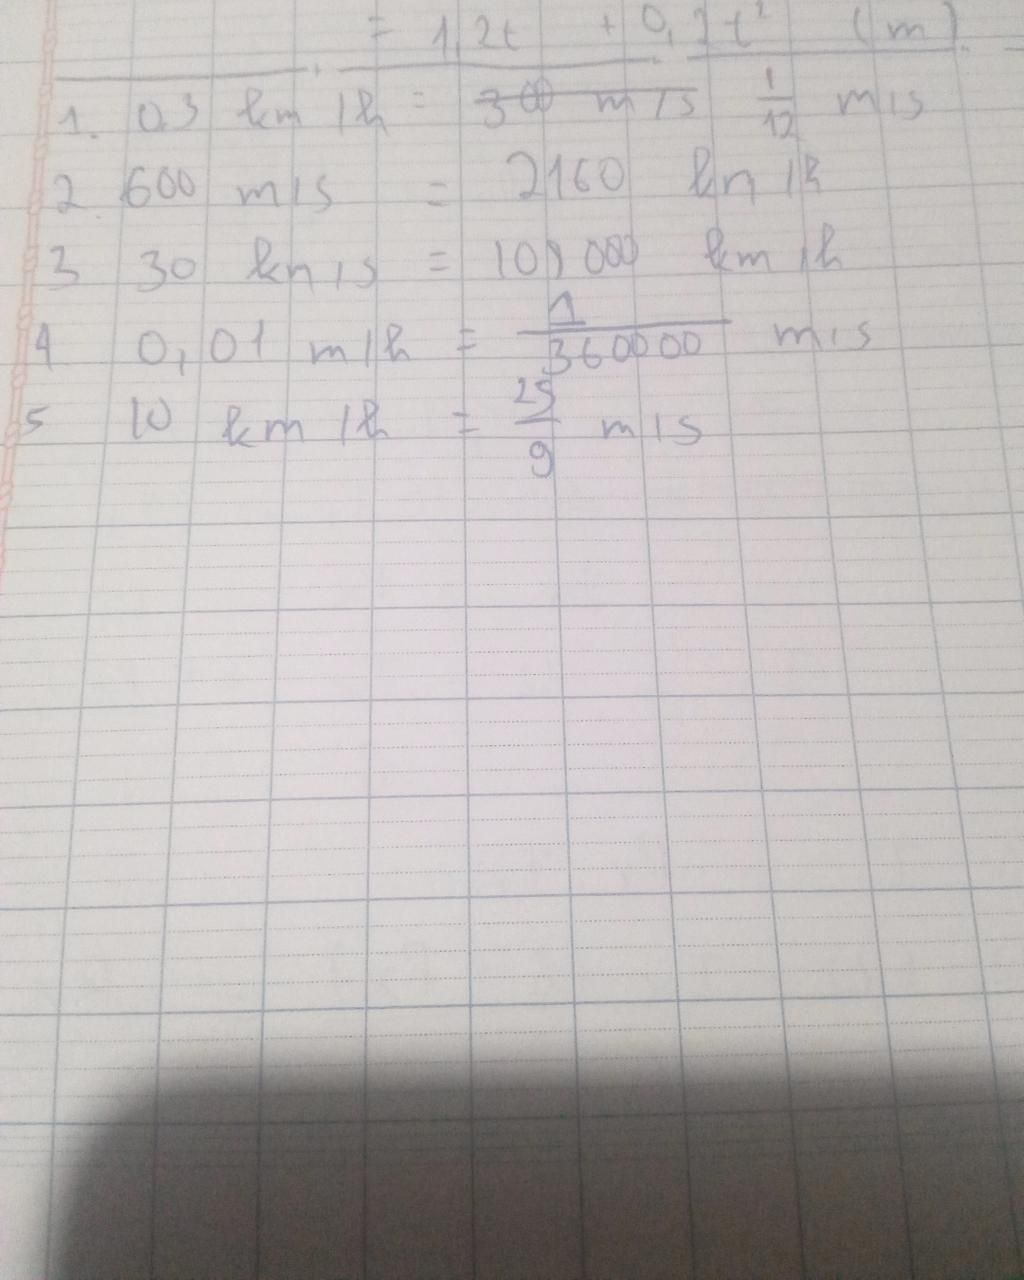 = 1,2t + 0, t² (m)
1. 0.3 km/h = 300 m/s 1/12 m/s
2. 600 m/s = 2160 km/h
3 30 km/s = 108000 km/h
4 0,01 m/h = 1/360000 m/s
5 10 km/h = 25/9 m/s